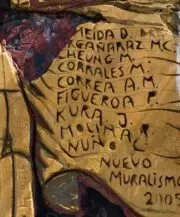 MEIDA D.
RGAÑARAZ MC
CHEUNG M.
CORRALES M.
CORREA A.M.
FIGUEROA F.
KURA J.
MOLINA
NUÑO C.
NUEVO
MURALISMO
2005